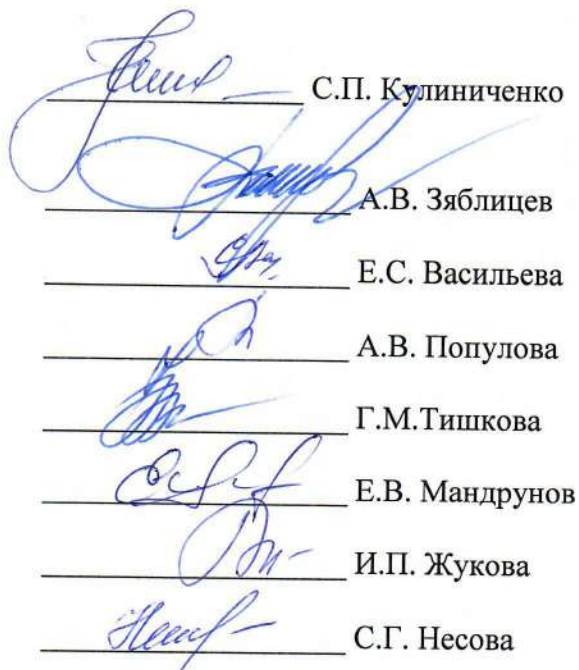 С.П. Кулиниченко
А.В. Зяблицев
Е.С. Васильева
А.В. Популова
Г.М.Тишкова
Е.В. Мандрунов
И.П. Жукова
С.Г. Несова